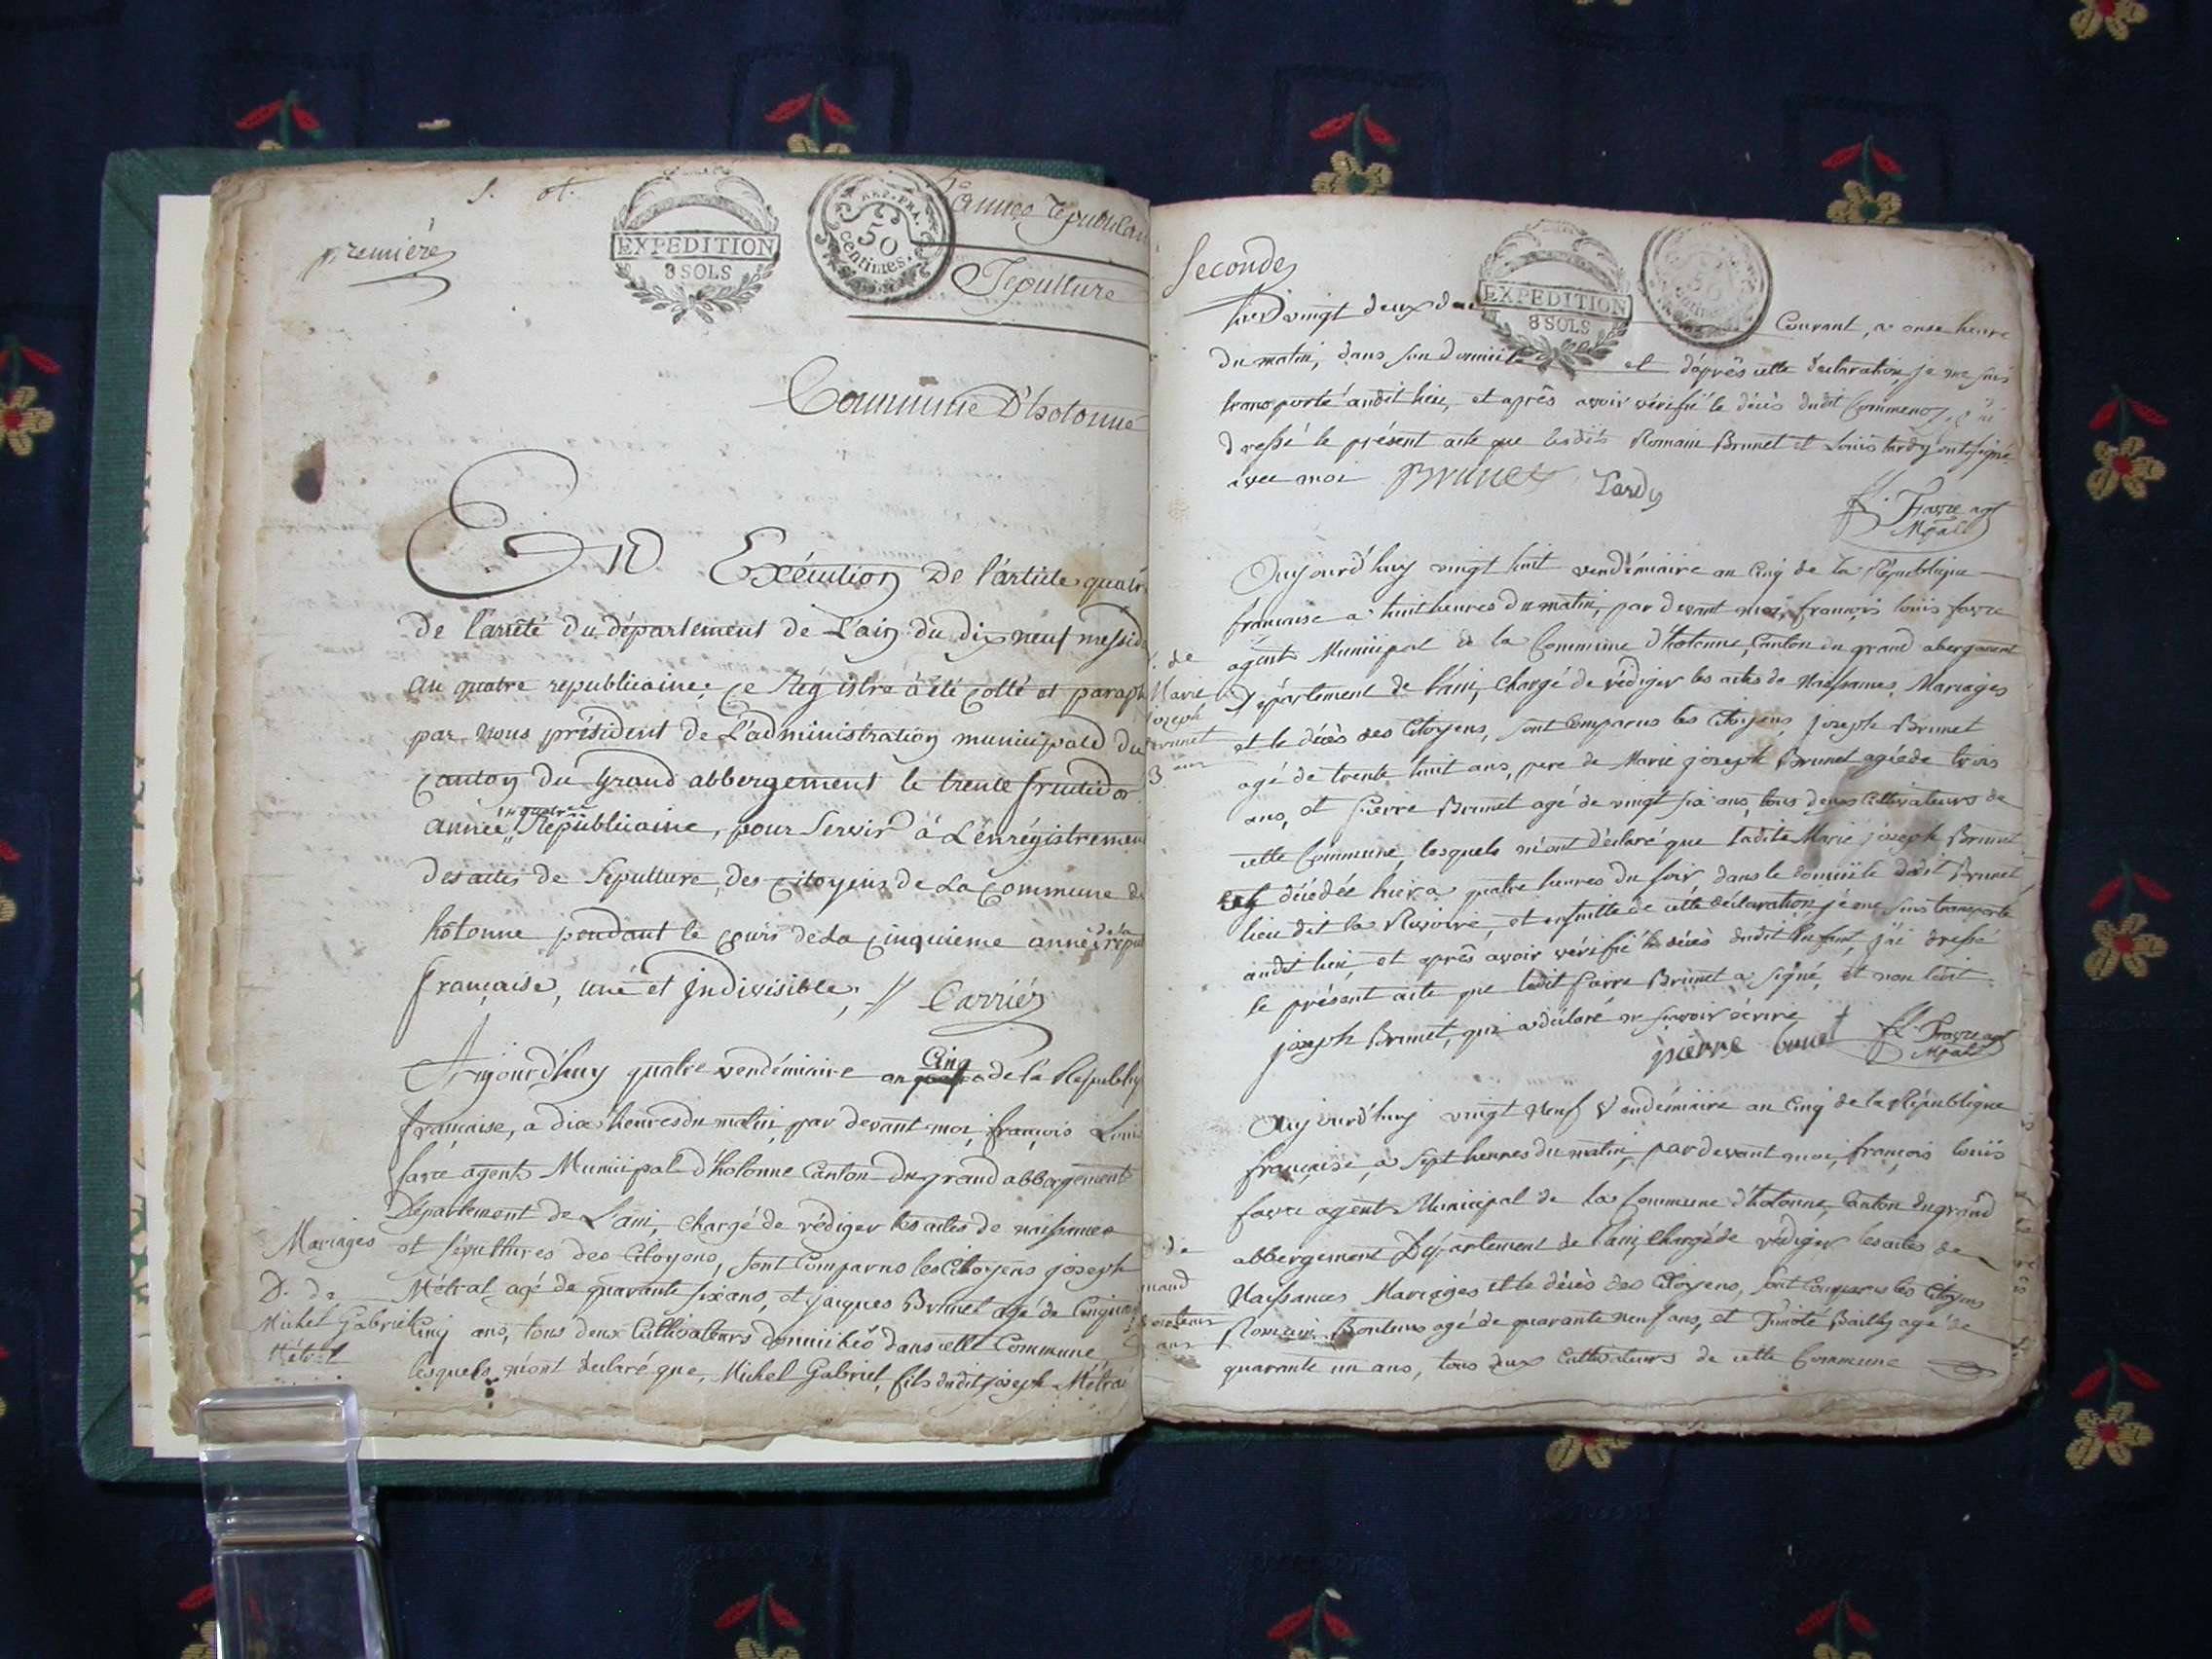 première
EXPEDITION
8 SOLS
REP. FRA.
50
centimes.
5e année républicai
Sépulture
Commune D'hotonne
En Exécution de l'article quatr
de l'arrêté du département de L'ain du dix neuf messido
an quatre republicaine; ce Régistre à été cotté et paraph
par nous président de L'administration municipale du
canton du Grand abbergement le trente fructidor
année quatre Républicaine, pour servir à L'enrégistremen
des actes de Sepulture, des citoyens de La Commune de
hotonne pendant le cours de La cinquieme année de la répu
française, une et indivisible; // Carrier
Aujourd'huy quatre vendémiaire an Cinq de la Republiq
française, a dix heures du matin, par devant moi, françois Loui
favre agent Municipal d'hotonne Canton du grand abbergement
Département de L'ain, chargé de rédiger les actes de naissances
Mariages et sépultures des Citoyens, sont Comparus les Citoyens joseph
Métral agé de quarante six ans, et jacques Brunet agé de Cinquan
Cinq ans, tous deux Cultivateurs domiciliés dans cette Commune
lesquels m'ont déclaré que, Michel Gabriel, fils dudit joseph Métral
D. de
Michel Gabriel
Métral
Seconde
EXPEDITION
8 SOLS
50
centimes
vingt deux du Courant, a onze heure
du matin, dans son domicile et d'après cette déclaration, je me suis
transporté audit lieu, et après avoir vérifié le décès dudit j'ai
dressé le présent acte que lesdits Romain Brunet et Louis tardy ont signé
avec moi Brunet Tardy
fL. Favre agt
Mpal
Aujourd'huy vingt huit vendémiaire an Cinq de la République
française a huit heures du matin, par devant moi, françois louis favre
agent Municipal de la Commune d'hotonne, Canton du grand abergement
Département de l'ain, chargé de rédiger les actes de Naissances, Mariages
et le décès des Citoyens, sont Comparus les Citoyens, joseph Brunet
agé de trente huit ans, pere de Marie joseph Brunet agée de trois
ans, et Pierre Brunet agé de vingt six ans, tous deux Cultivateurs de
cette Commune, lesquels m'ont déclaré que ladite Marie joseph Brunet
est décédée hier a quatre heures du soir, dans le domicile dudit Brunet,
lieu dit la Rivoire, et ensuitte de cette déclaration, je me suis transporté
audit lieu, et après avoir vérifié le décès dudit Enfant, j'ai dressé
le présent acte que ledit Pierre Brunet a signé, et non ledit
joseph Brunet, qui a déclaré ne sçavoir écrire
pierre brunet fL. Favre agt
Mpal
. de
Marie
joseph
Brunet
3 ans
Aujourd'huy vingt Neuf Vendémiaire an Cinq de la République
française, a Sept heures du matin, par devant moi, françois louis
favre agent Municipal de la Commune d'hotonne, Canton du grand
abbergement Département de l'ain, chargé de rédiger les actes de
Naissances Mariages et le décès des Citoyens, sont comparus les Citoyens
Romain agé de quarante Neuf ans, et Timoté Bailly agé de
quarante un ans, tous deux Cultivateurs de cette Commune
de
ans